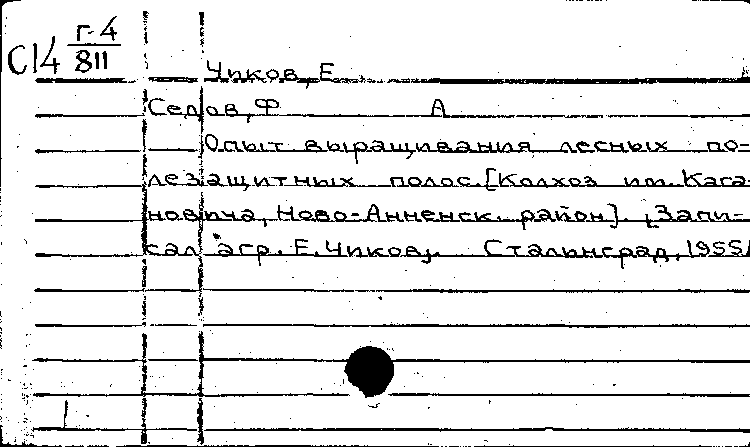 С14 Г-4/811
Чиков, Е
Седов, Ф А
Опыт выращивания лесных по-
лезащитных полос. [Колхоз им. Кага-
новича, Ново-Анненск. район]. [Запи-
сал агр. Е. Чиков]. Сталинград, 1955